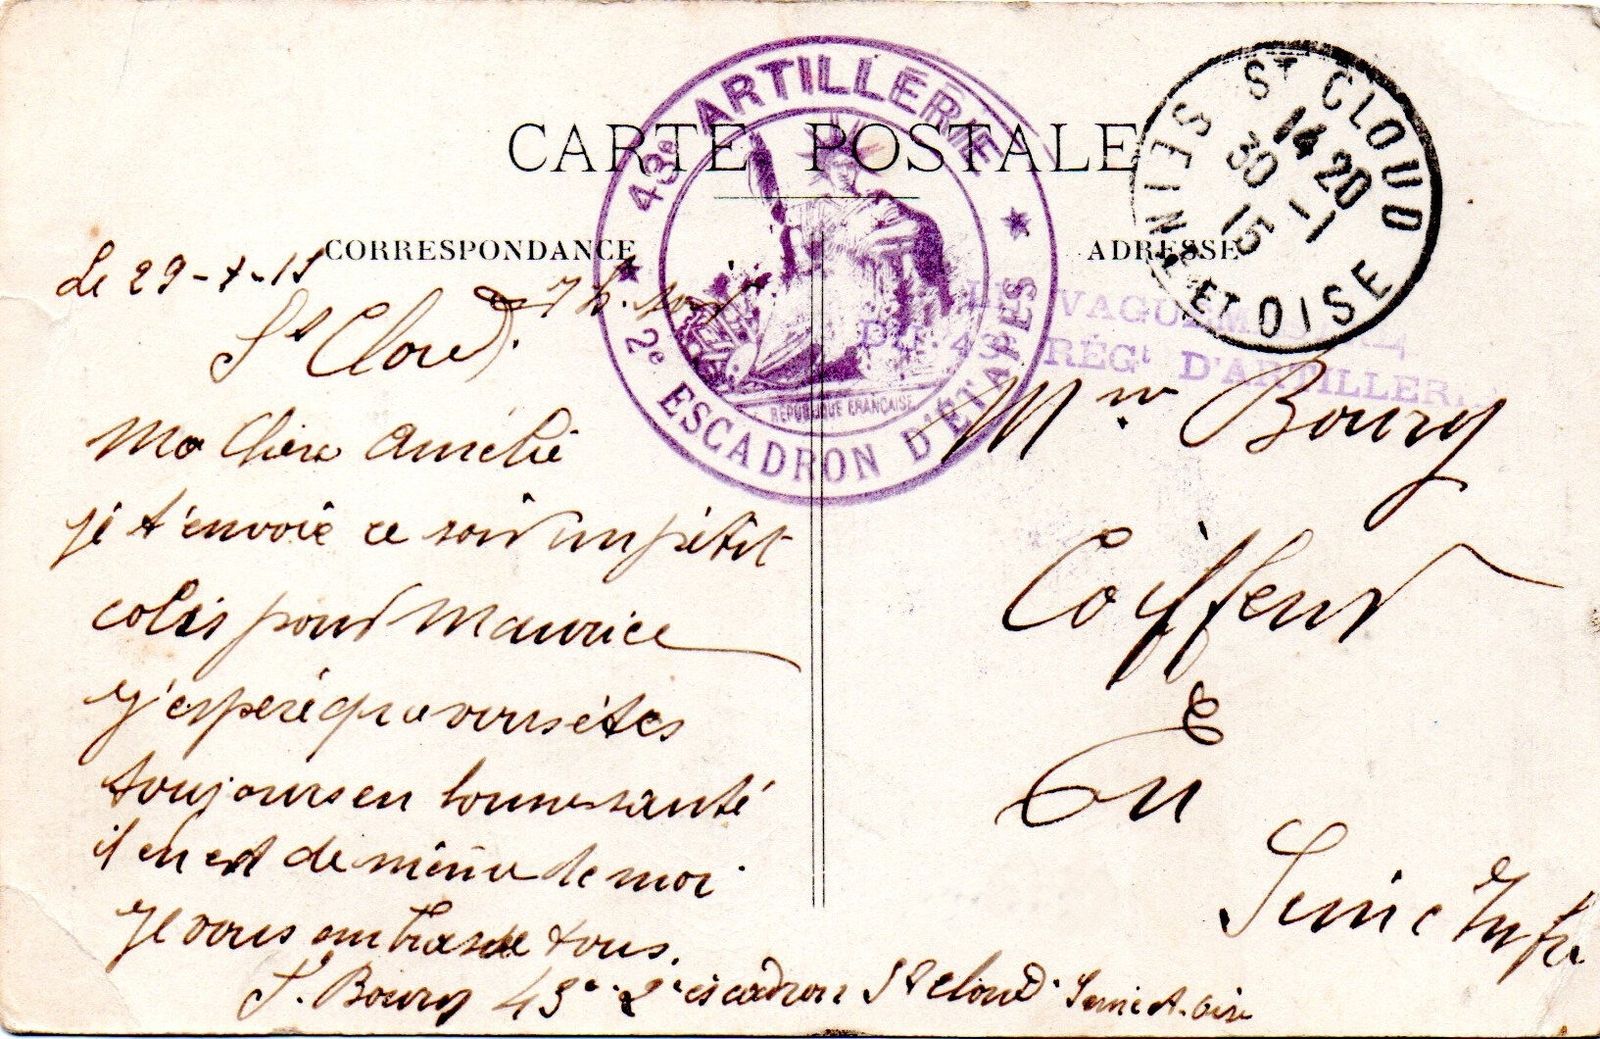 CARTE POSTALE
CORRESPONDANCE
ADRESSE
43e ARTILLERIE
2e ESCADRON D'ETAPES
REPUBLIQUE FRANÇAISE
St CLOUD
SEINE ET OISE
14 20
30 -1
15
LE VAGUEMESTRE
DU 43e RÉGt D'ARTILLERIE
Le 29-1-15
7 h. soir
St Cloud.
Ma Chère Amélie
je t'envoie ce soir un pétit
colis pour Maurice
J'espère que vous étes
toujours en bonne santé
il en est de même de moi
Je vous embrasse tous.
F. Boury 43e 2e escadron St Cloud Seine et Oise
Mme Boury
Coiffeur
à
Eu
Seine Infre